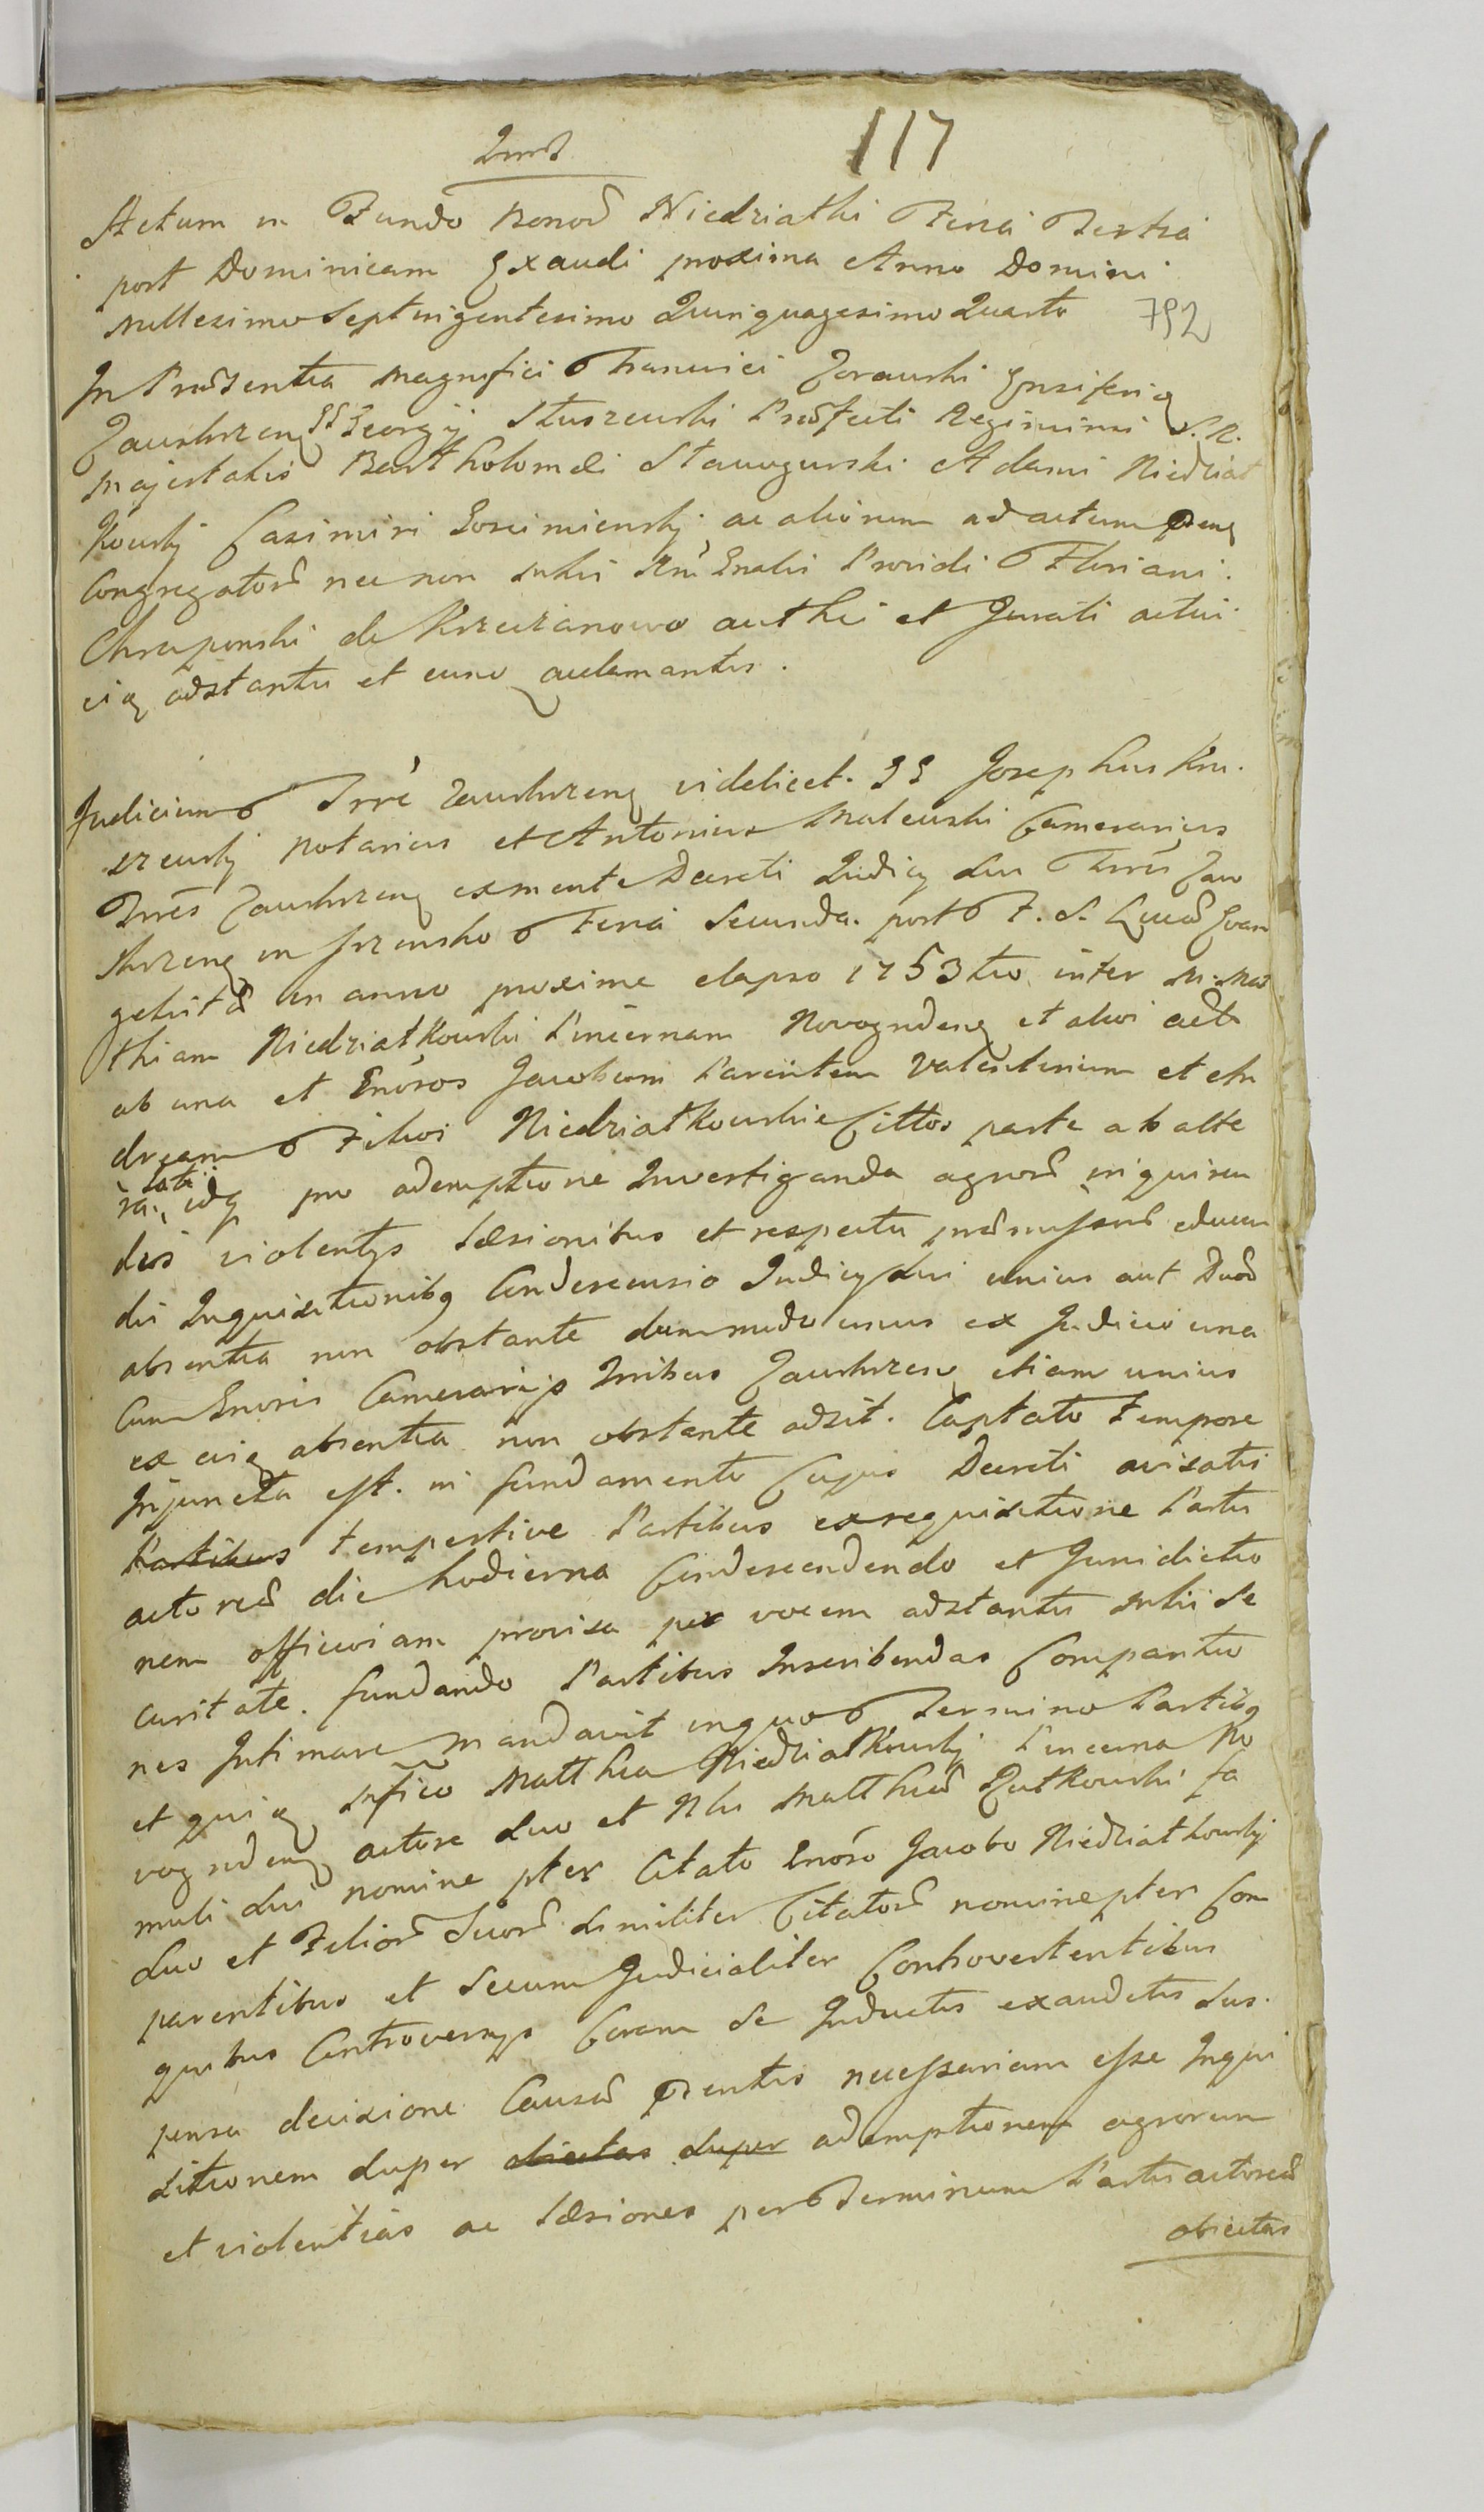 117
Actum in Fundo bonor Niedziatki Feria Tertia
post Dominicam Exaudi proxima Anno Domini
Millesimo Septingentesimo Quinquagesimo Quarto 792
In Praesentia Magnifici Francisci Zorawski Ensiferi
Zawskrzen Georgij Stuszewski Praefecti Regiminis S. R.
Majestatis Bartholomaei Stawogurski Adami Niedziat
kowskj Casimiri Gosciminskj ac aliorum ad actum
Congregator nec non Providi Floriani
Chrapenski de Krzeczanowo et Jurati actui
adstantis et acclamantis.
Judicium Trre Zawskrzen videlicet. Josephus Kru.
szewskj Notarius et Antonius Malewski Camerarius
Trres Zawskrzen ex mente Decreti Judicij sui Trris Zaw
skrzen in Szrensko Feria Secunda post F. S. Lucae Evan
gelistae in anno proxime elapso 1753tio inter M. Mat
thiam Niedziatkowski Pincernam Novogrden et alios act
ab una et Gnosos Jacobum Parentem Valentinum et An
dream Filios Niedziatkowskie Cittos parte ab alte
ra. idq pro ademptione Investiganda agror inquiren
dis violentijs laesionibus et respectu praemissor educen
dis Inquisitionibq Condescensio Judicij sui unius aut Duor
absentia non obstante dummodo unus ex Judicio una
cum Gnoris Camerarijs Trribus Zawskrzen etiam unius
ex eiq absentia non obstante adsit. Captato tempore
Injuncta est. in fundamento Cujus Decreti avisatis
Partibus tempestive Partibus ex requisitione Partis
actorea die hodierna Condescendendo et Juridictio
nem officiosam provisa per vocem adstantis se
curitate. fundando Partibus Inscribendas Comparitio
nes Intimare mandavit in quo Termino Partibq
et quiq Mfico Matthia Niedziatkowskj Pincerna No
vogrden actore suo et Nlis Matthiae Rutkowski fa
muli sui nomine pter Citato Gnoso Jacobo Niedziatkowskj
suo et Filior Suor similiter Citator nomine pter Com
parentibus et secum Judicialiter Controvertentibus
quibus Controversijs Coram se Inductis exauditis Sus.
pensa decisione Causae necessariam esse Inqui
sitionem super obiectas super ademptionem agrorum
et violentias ac laesiones per Terminum Partis actoreae
obiectas